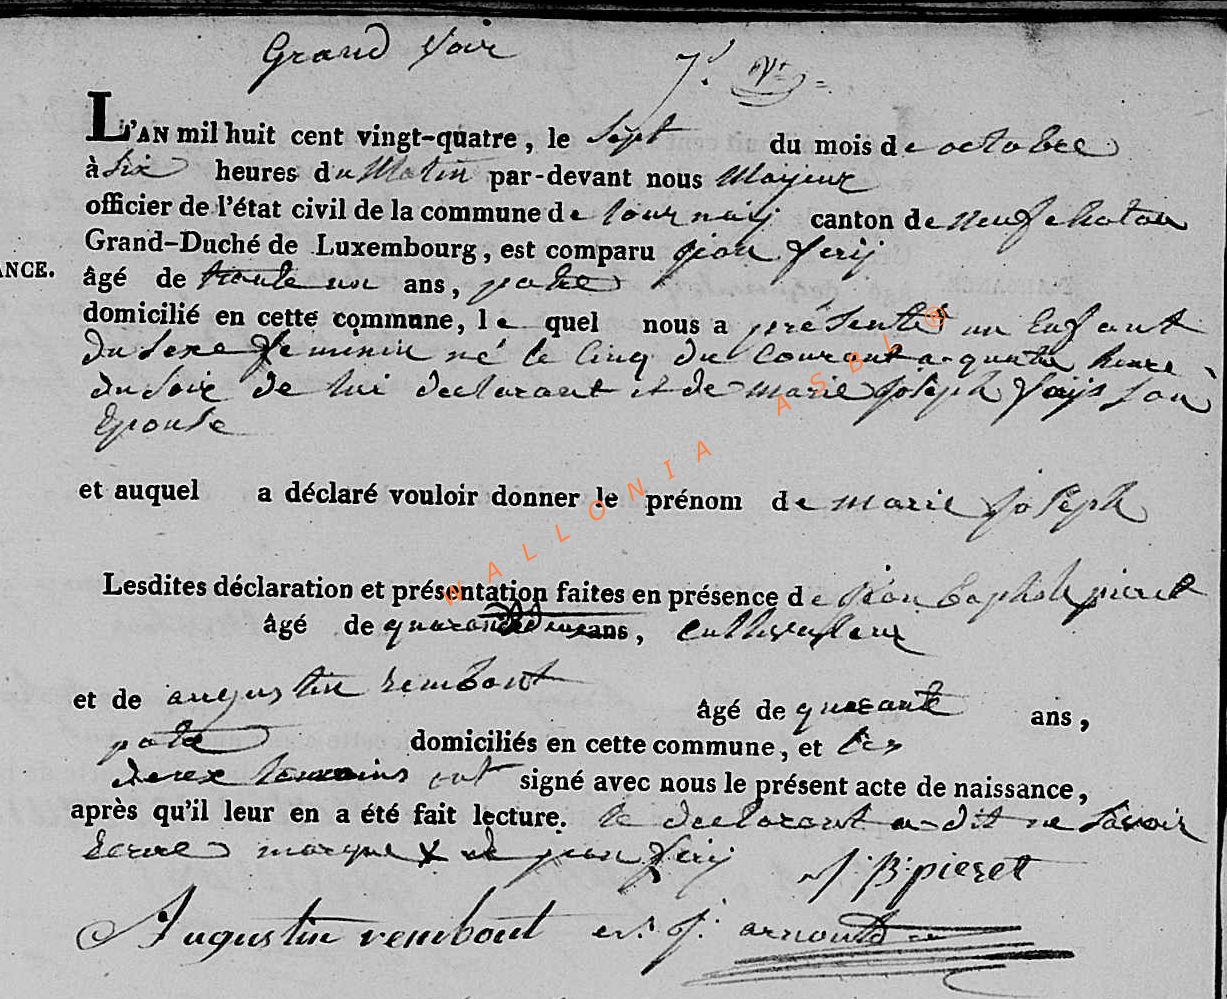 Grand Voir 7.bre
L'AN mil huit cent vingt-quatre, le Sept du mois de octobre
à Six heures du Matin par-devant nous Mayeur
officier de l'état civil de la commune de tournay canton de neufchatau
Grand-Duché de Luxembourg, est comparu jean fery
ANCE.
âgé de trante un ans, patre
domicilié en cette commune, le quel nous a présenté un Enfant
du sexe feminin né le Cinq du Courant a quatre heure
du soir de lui declarant et de marie joseph fays son
Epouse
et auquel a déclaré vouloir donner le prénom de marie joseph
Lesdites déclaration et présentation faites en présence de jéan baptiste pieret
âgé de quarante ans, cultivateur
et de augustin rembout âgé de quarante ans,
patre domiciliés en cette commune, et les
deux temoins ont signé avec nous le présent acte de naissance,
après qu'il leur en a été fait lecture. le declarant a dit ne savoir
Ecrire marque X de jean fery J:B:pieret
Augustin rembout j: arnould
WALLONIA ASBL ®